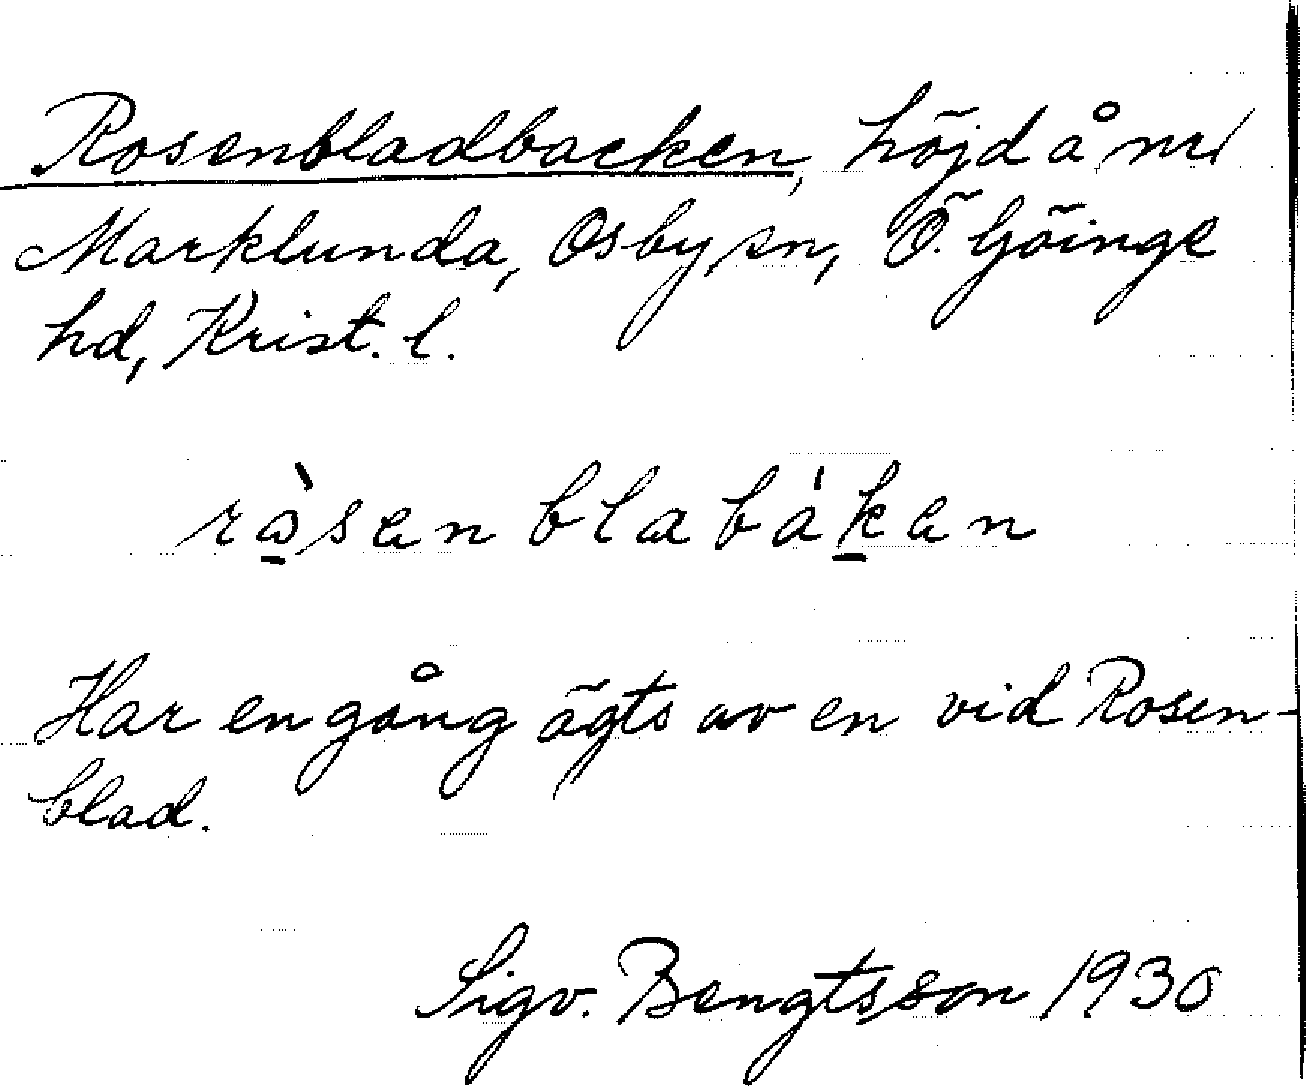 Rosenbladbacken, höjd å nr 1
Marklunda, Osby sn, Ö. Göinge
hd, Krist. l.
ròsenblabákен
Har en gång ägts av en vid Rosen-
blad.
Sigv. Bengtsson 1930